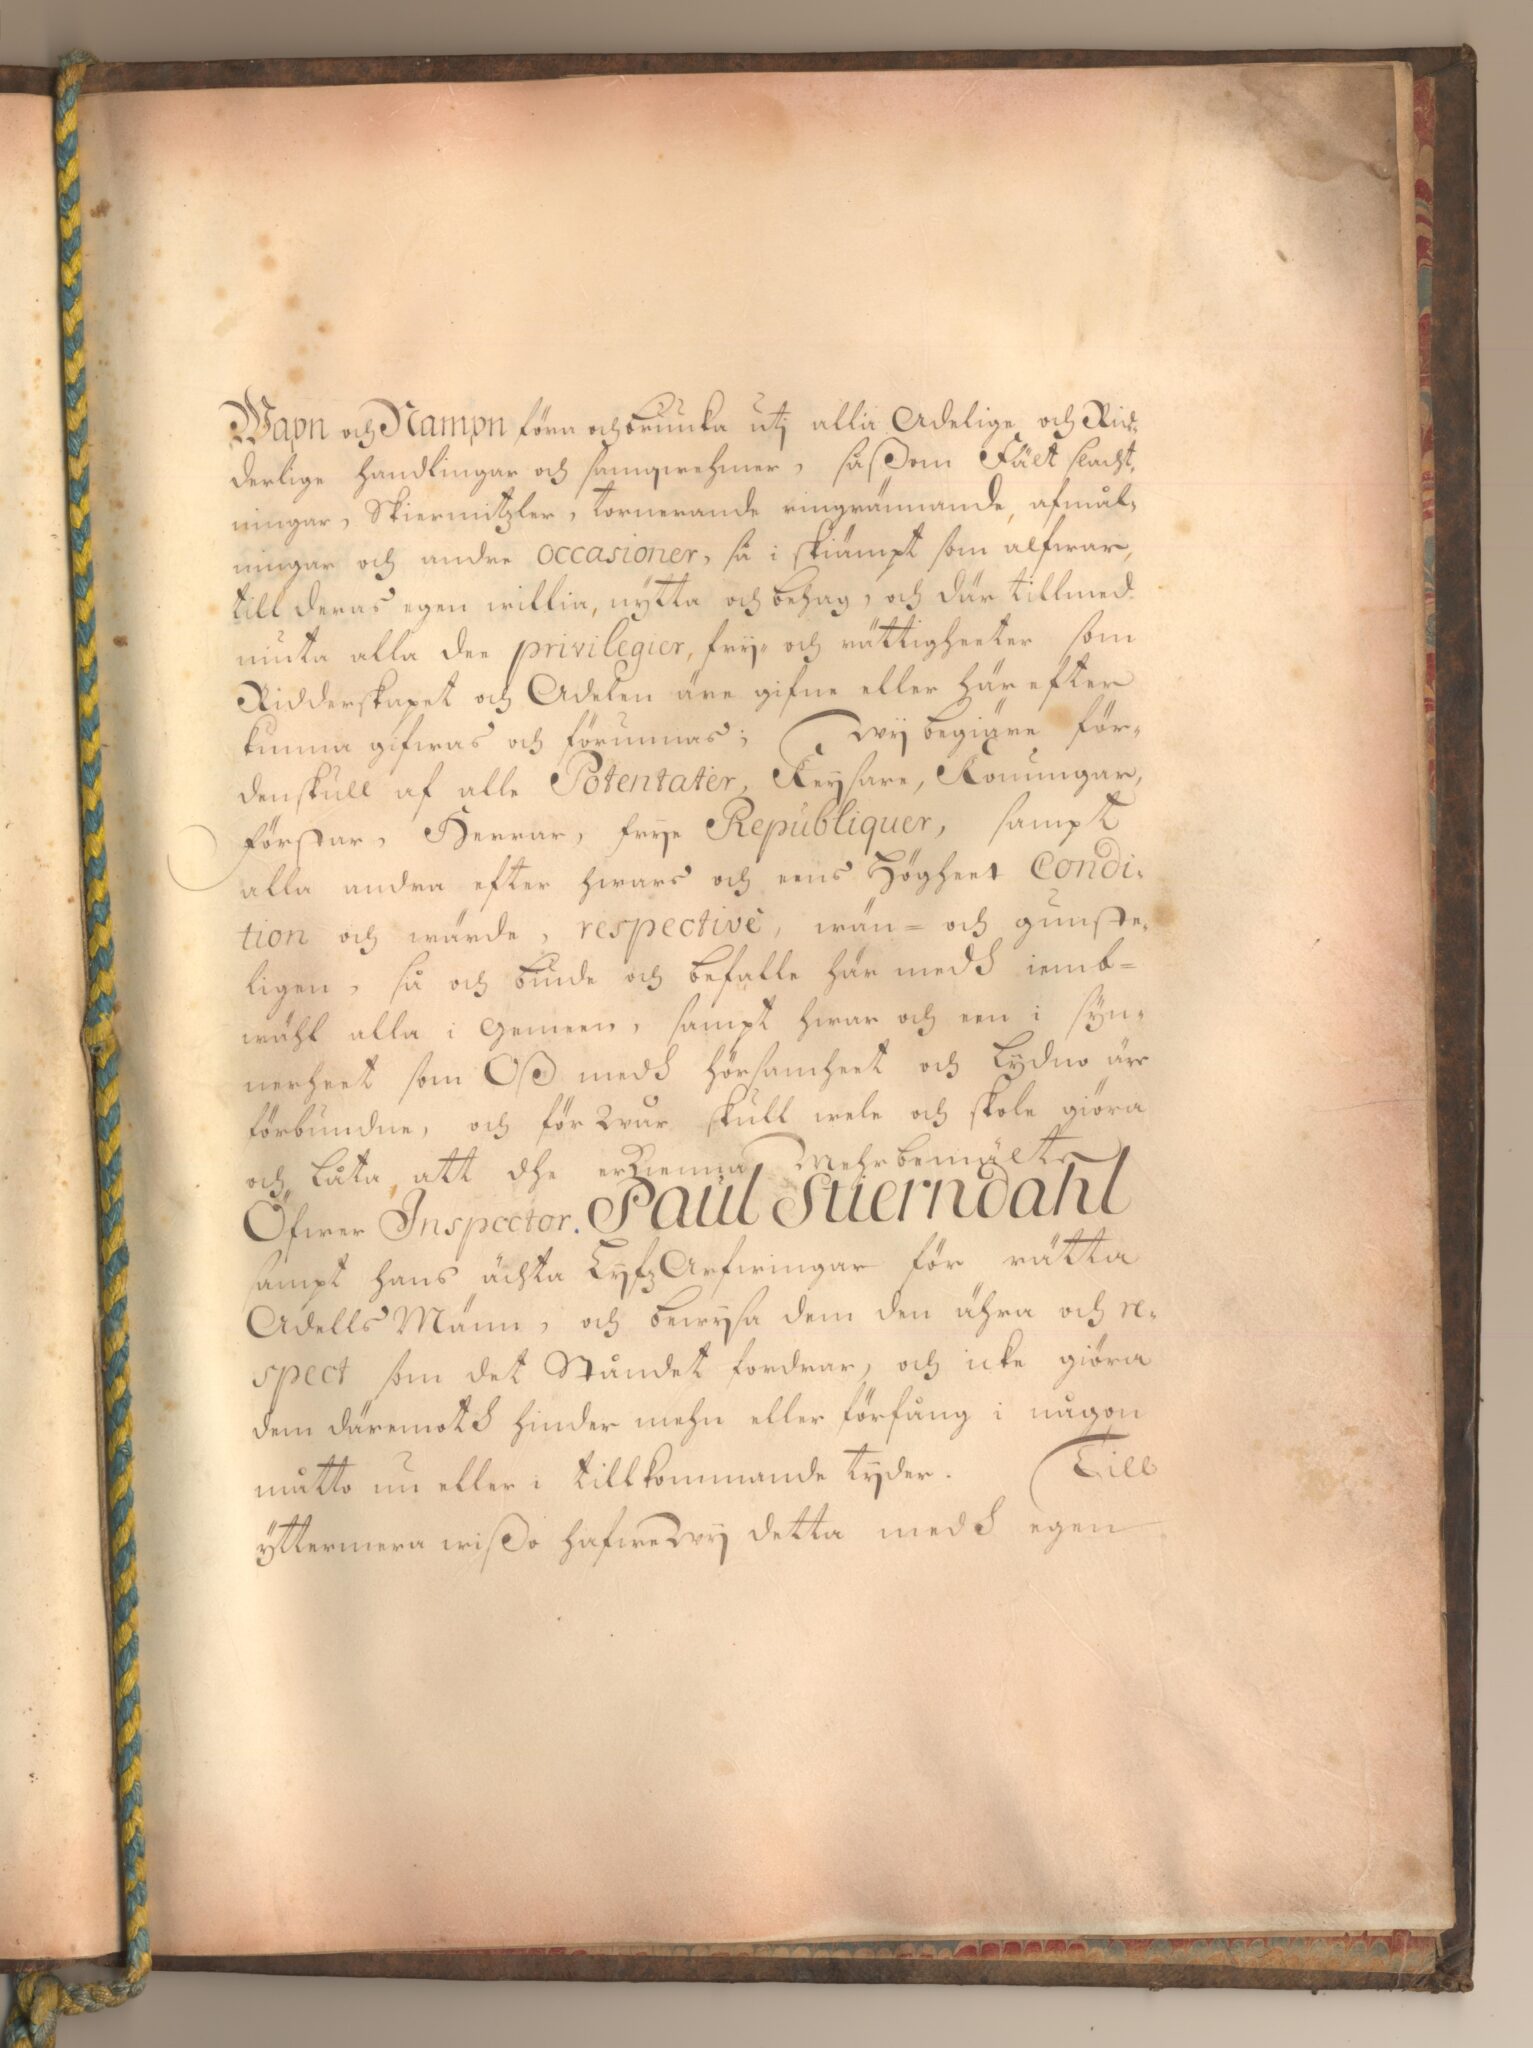 Wapn och Nampn föra och bruuka utj alla Adelige och Rid-
derlige handlingar och samqwehmer, såßom Fält slacht-
ningar, Skiermitzler, tornerande ringrännande, afmål-
ningar och andre occasioner, så i skiämpt som alfwar,
till deras egen willia, nÿtta och behag, och där tillmed
niuta alla dee privilegier, frij- och rättigheeter som
Ridderskapet och Adelen äre gifne eller här efter
kunna gifwas och förunnas; Wij begiäre för-
denskull af alle Potentater, Keijsare, Konungar,
Förstar, Herrar, frije Republiquer, sampt
alla andra efter hwars och eens Högheet Condi-
tion och wärde, respectivè, wän- och gunste-
ligen, så och biude och befalle här medh iemb-
wähl alla i Gemeen, sampt hwar och een i sÿn-
nerheet som Oß medh hörsamheet och Lydno äre
förbundne, och för Wår skull wele och skole giöra
och låta, att dhe erkienna Mehrbemälte
Öfwer Inspector. Paul Stierndahl
sampt hans ächta LyfzArfwingar för rätta
Adells Männ, och bewijsa dem den ähra och re-
spect som det Ståndet fordrar, och icke giöra
dem däremoth hinder mehn eller förfång i någon
måtto nu eller i tillkommande tijder. Till
ÿttermera wißo hafwe Wij detta medh egen